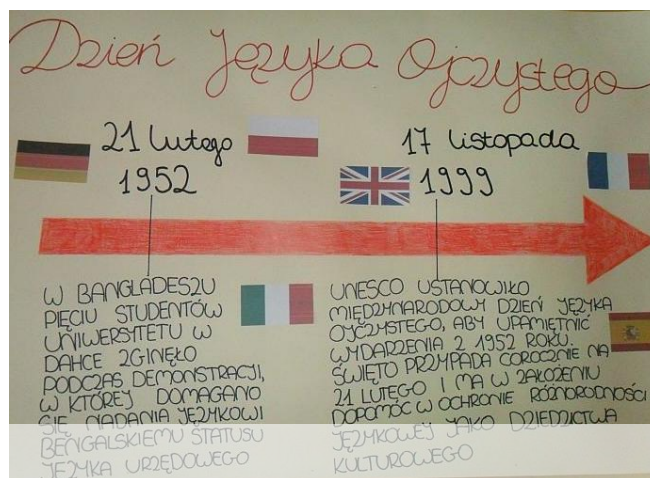 Dzień Języka Ojczystego
21 lutego
1952
17 listopada
1999
W BANGLADESZU
PIĘCIU STUDENTÓW
UNIWERSYTETU W
DAHCE ZGINĘŁO
PODCZAS DEMONSTRACJI,
W KTÓREJ DOMAGANO
SIĘ NADANIA JĘZYKOWI
BENGALSKIEMU STATUSU
JĘZYKA URZĘDOWEGO
UNESCO USTANOWIŁO
MIĘDZYNARODOWY DZIEŃ JĘZYKA
OJCZYSTEGO, ABY UPAMIĘTNIĆ
WYDARZENIA Z 1952 ROKU.
ŚWIĘTO PRZYPADA COROCZNIE NA
21 LUTEGO I MA W ZAŁOŻENIU
DOPOMÓC W OCHRONIE RÓŻNORODNOŚCI
JĘZYKOWEJ JAKO DZIEDZICTWA
KULTUROWEGO